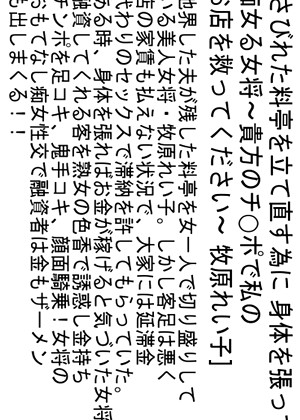 さびれた料亭を立て直す為に 身体を張っ
痴女る女将～貴方のチ○ポで私の
お店を救ってください～ 牧原れい子]
他界した夫が残した料亭を女一人で切り盛りして
いる美人女将・牧原れい子。しかし客足は悪く
店の家賃も払えない状況で、大家には延滞金
代わりのセックスで滞納を許してもらっていた。
ある時、身体を張ればお金が稼げると気づいた女将
融資してくれる客を熟女の色香で誘惑し金持ち
チンポを足コキ、鬼手コキ、顔面騎乗！女将の
おもてなし痴女性交で融資者は金もザーメン
も出しまくる！！